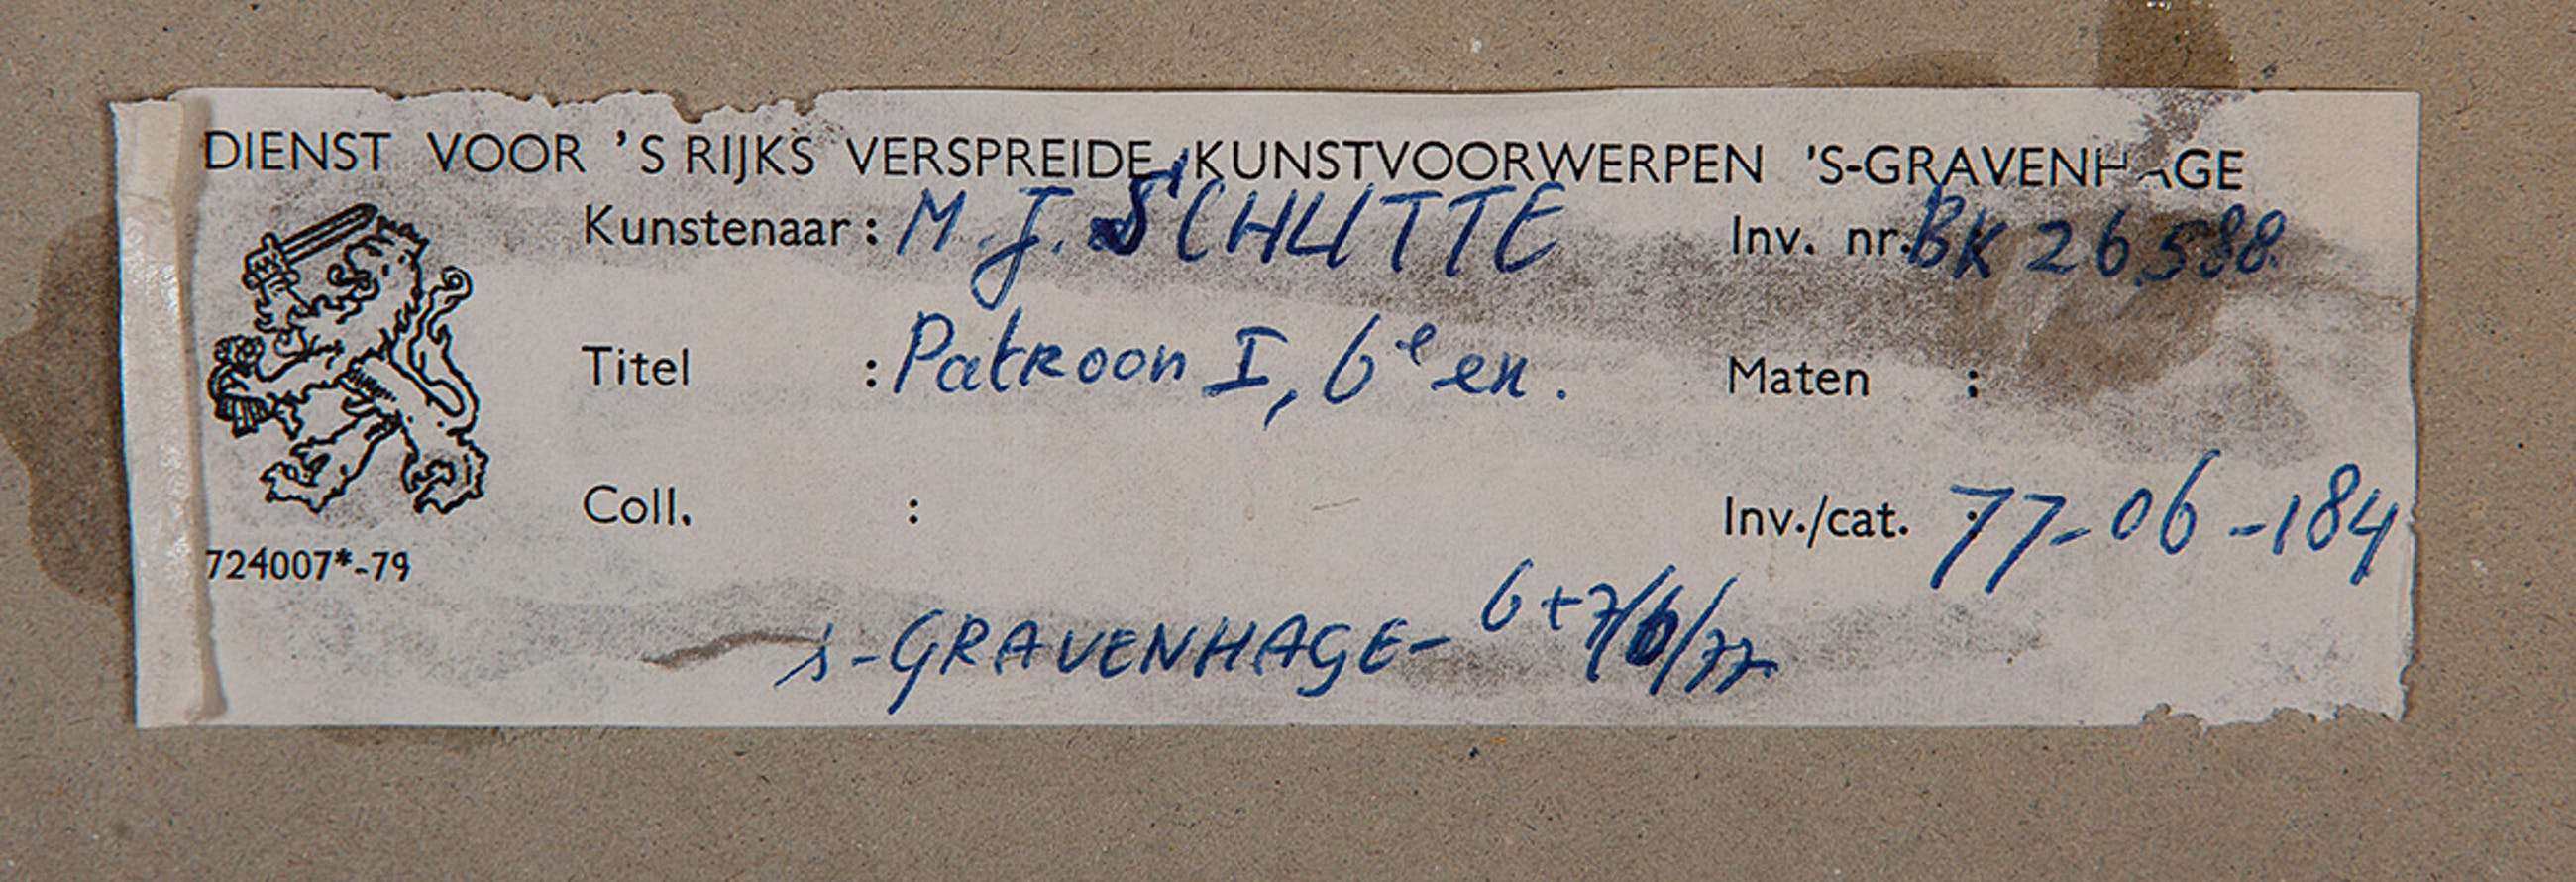 DIENST VOOR 'S RIJKS VERSPREIDE KUNSTVOORWERPEN 'S-GRAVENHAGE
Kunstenaar: M.J. SCHUTTE Inv. nr. BK 26.588.
Titel : Patroon I, 6e ex. Maten :
Coll. : Inv./cat. : 77-06-184
724007*-79
s-GRAVENHAGE- 6+7/6/77